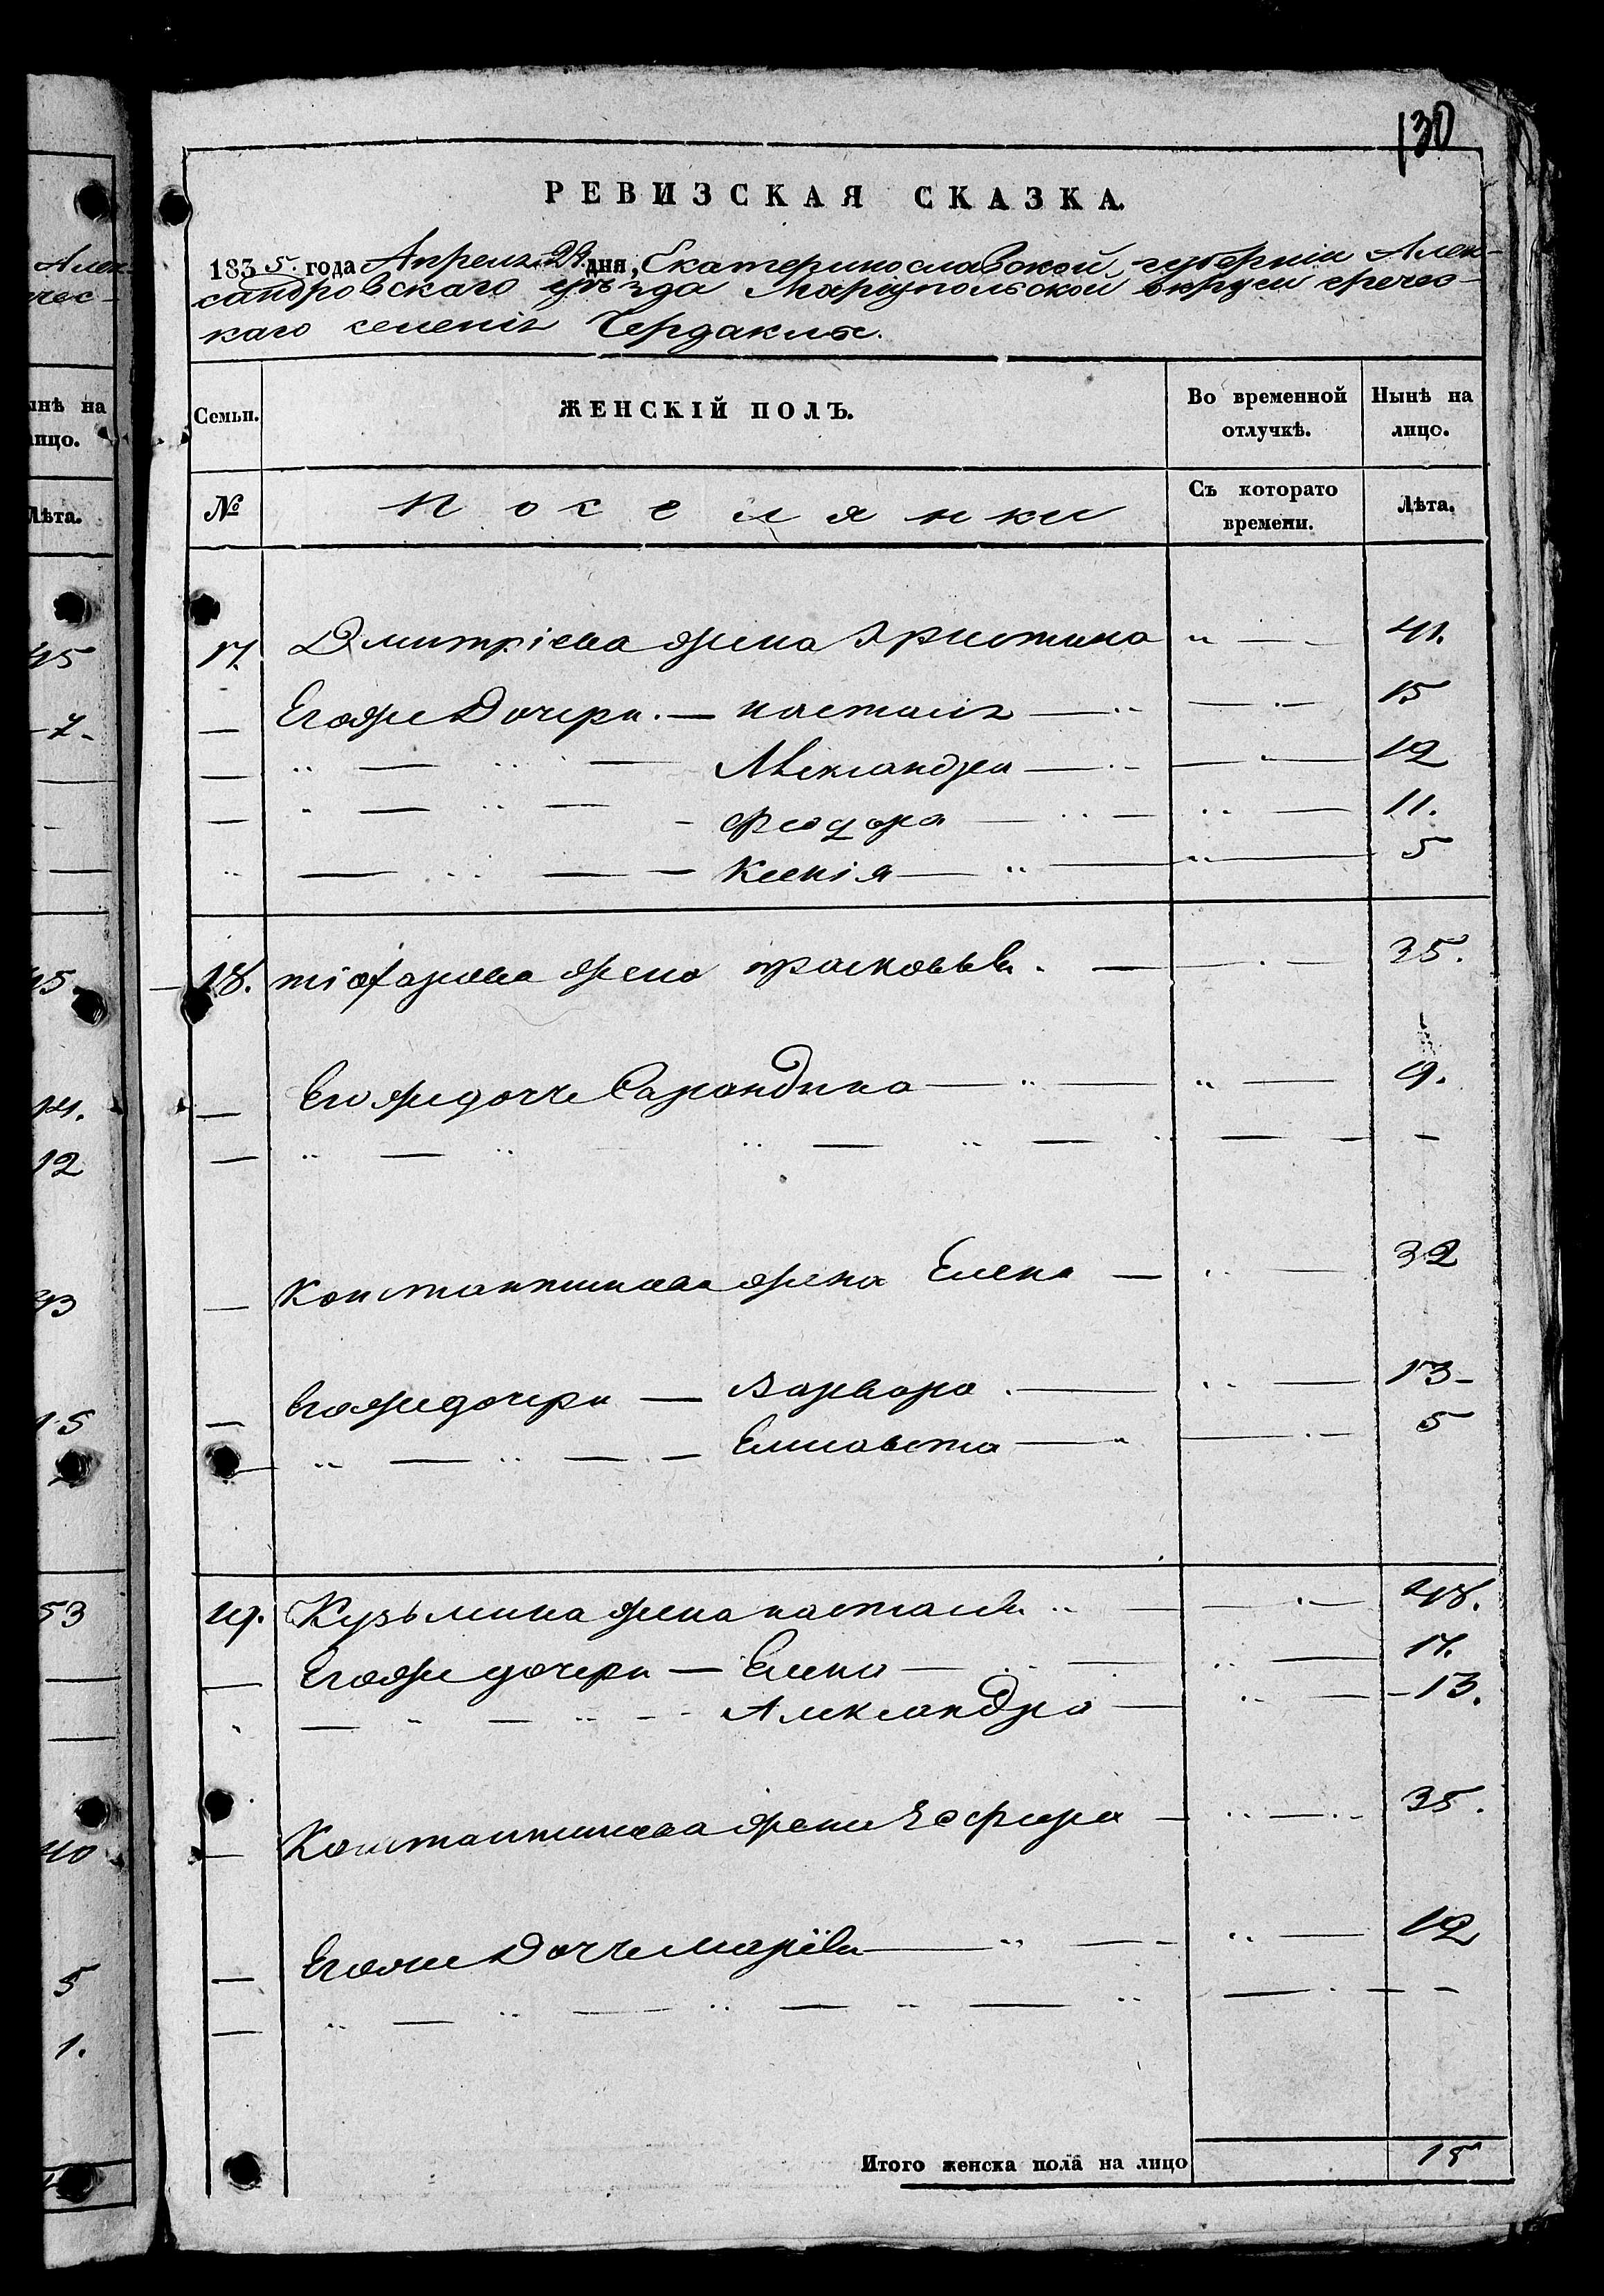 130
РЕВИЗСКАЯ СКАЗКА.
1835. года Апреля 29 дня, Екатеринославской губерніи Алек-
сандровскаго уѣзда Маріупольской округи гречес-
каго селенія Чердаклы.
Семьи.
ЖЕНСКІЙ ПОЛЪ.
Во временной отлучкѣ.
Нынѣ на лицо.
№
Поселянки
Съ котораго времени.
Лѣта.
17. Дмитріева жена Христина 41.
Егоже Дочери. — настасія 15
Александра 12
Феодора 11.
Ксенія 5
18. жена прасковья. 35.
Егоже дочь Сарандина 9.
Константинова жена Елена 32
Егоже дочери — Варвара. 13
Елисавета 5
19. Кузьмина жена настасья 48.
Егоже дочери — Елена 17.
Александра 13.
Константинова жена Есфира 35.
Егоже Дочь Марія 12
Итого женска пола на лицо 15
Алек-
чес-
ынѣ на
лицо.
Лѣта.
45
7.
45
14.
12
15
53
40
5
1.